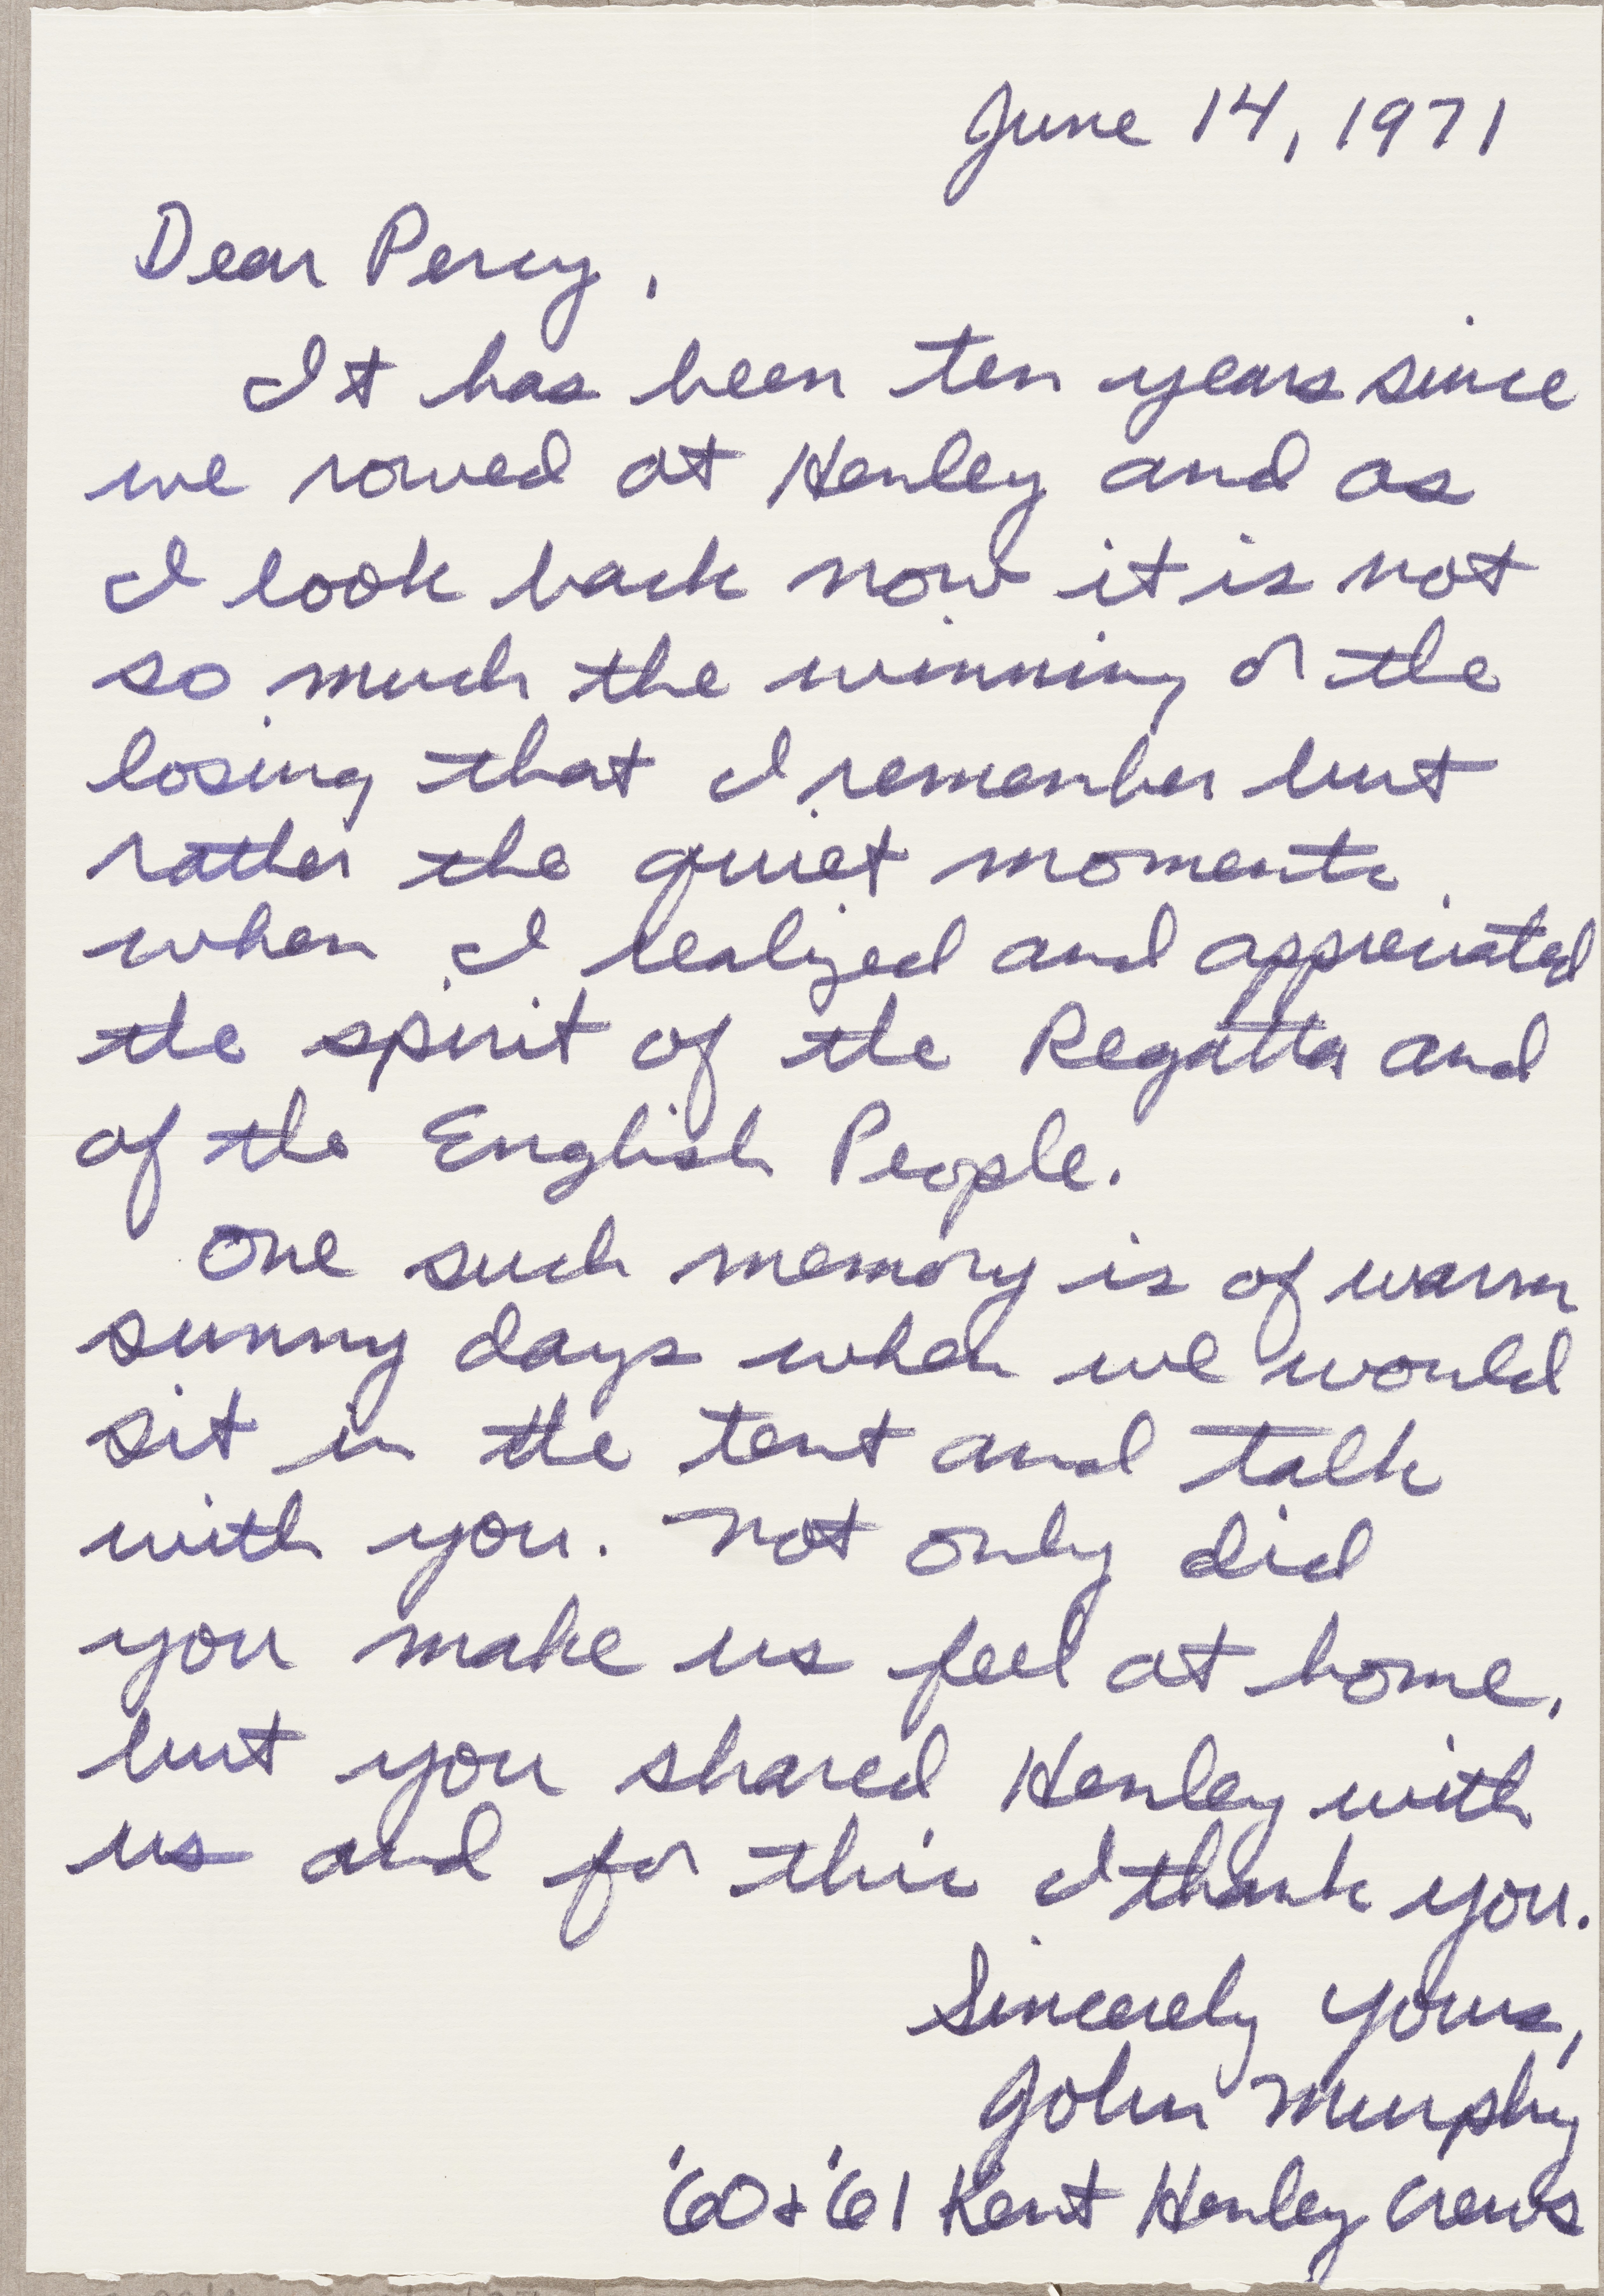 June 14, 1971
Dear Percy,
It has been ten years since
we rowed at Henley and as
I look back now it is not
so much the winning or the
losing that I remember but
rather the quiet moments
when I realized and appreciated
the spirit of the Regatta and
of the English People.
One such memory is of warm
sunny days when we would
sit in the tent and talk
with you. Not only did
you make us feel at home,
but you shared Henley with
us and for this I thank you.
Sincerely yours,
John Murphy
'60 & '61 Kent Henley Crews